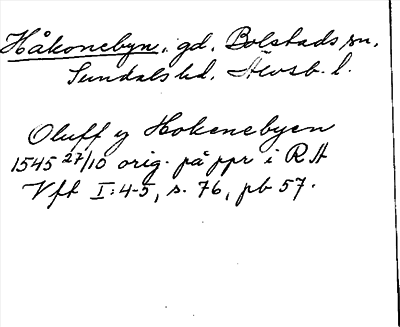 Håkonebyn, gd, Bolstads sn,
Sundals hd, Älvsb. l.
Oluff y Hokenebyen
1545 27/10 orig. på ppr i RA
Vfk I:4-5, s. 76, pb 57.